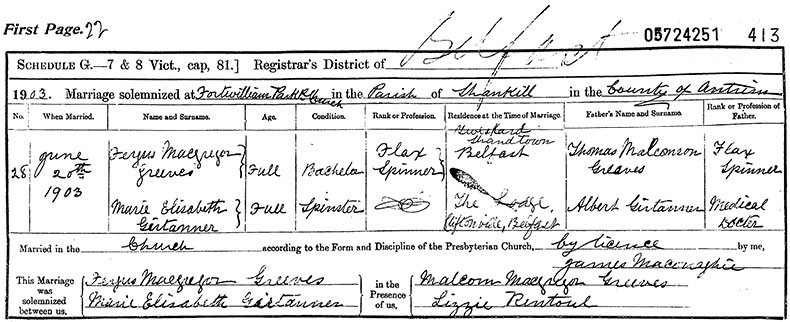 First Page. 22
05724251 413
SCHEDULE G.—7 & 8 Vict., cap, 81.] Registrar's District of Belfast
1903. Marriage solemnized at Fortwilliam Park Church in the Parish of Shankill in the County of Antrim
No. When Married. Name and Surname. Age. Condition. Rank or Profession. Residence at the Time of Marriage. Father's Name and Surname. Rank or Profession of Father.
28 June 20th 1903 Fergus Macgregor Greeves Full Bachelor Flax Spinner Strandtown Belfast Thomas Malcomson Greaves Flax Spinner
Marie Elisabeth Girtanner Full Spinster The Lodge, Cliftonville, Belfast Albert Girtanner Medical Doctor
Married in the Church according to the Form and Discipline of the Presbyterian Church, by licence by me,
James Maconaghie
This Marriage was solemnized between us, Fergus Macgregor Greeves Marie Elisabeth Girtanner in the Presence of us, Malcom Macgregor Greeves Lizzie Rentoul